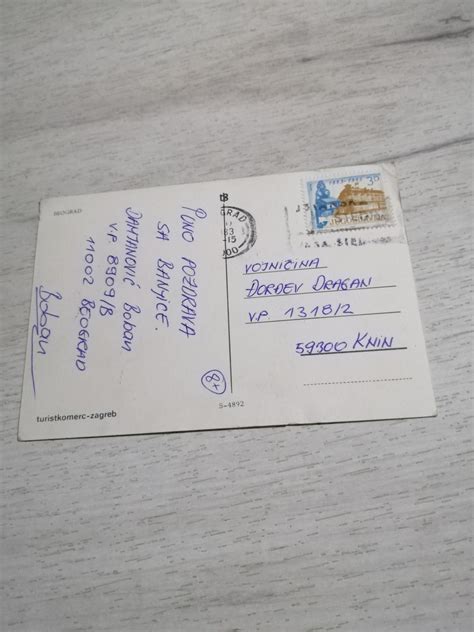 BEOGRAD
PUNO POZDRAVA
SA BANJICE.
DAMJANOVIĆ BOBAN
V.P. 8909/B
11002 BEOGRAD
Boban
turistkomerc-zagreb
8+
S-4892
VOJNIČINA
ĐORĐEV DRAGAN
V.P. 1318/2
59300 KNIN